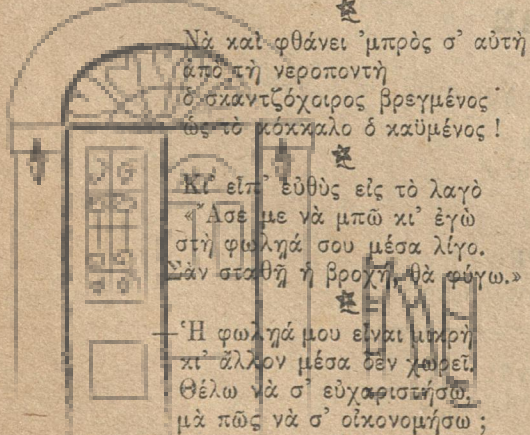 Νὰ καὶ φθάνει ’μπρὸς σ’ αὐτὴ
ἀπὸ τὴ νεροποντὴ
ὁ σκαντζόχοιρος βρεγμένος
ὡς τὸ κόκκαλο ὁ καϋμένος !
Κι’ εἶπ’ εὐθὺς εἰς τὸ λαγὸ
« Ἄσε με νὰ μπῶ κι’ ἐγὼ
στὴ φωληά σου μέσα λίγο.
Σὰν σταθῇ ἡ βροχή, θὰ φύγω.»
— Ἡ φωληά μου εἶναι μικρὴ
κι’ ἄλλον μέσα δὲν χωρεῖ.
Θέλω νὰ σ’ εὐχαριστήσω,
μὰ πῶς νὰ σ’ οἰκονομήσω ;